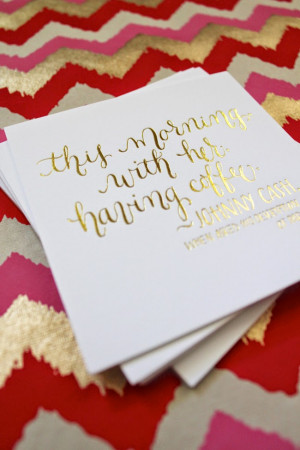 this morning,
with her,
having coffee.
~JOHNNY CASH
WHEN ASKED HIS